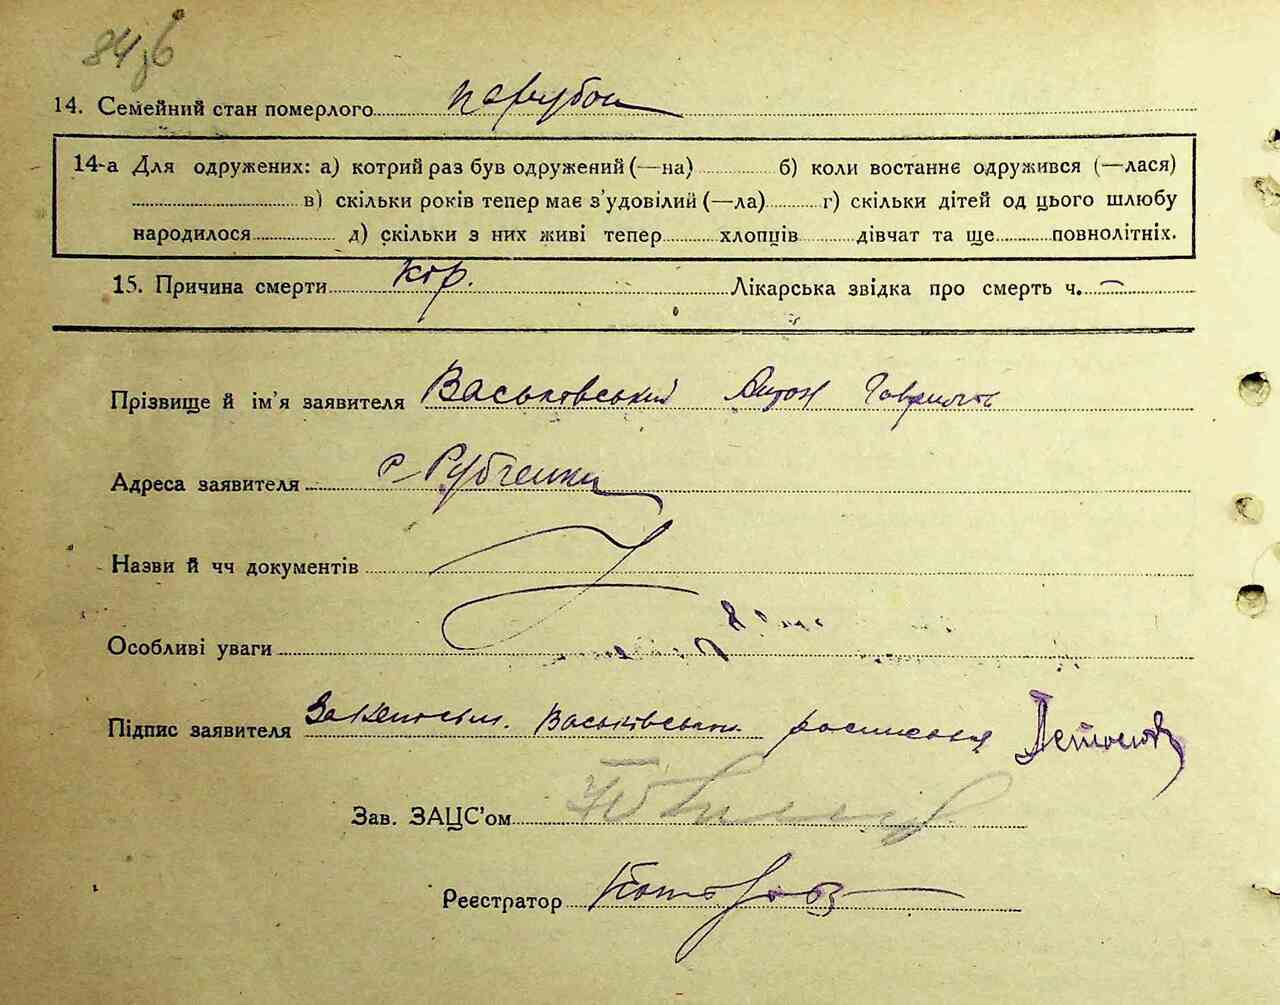 84зв
14. Семейний стан померлого парубок
14-а Для одружених: а) котрий раз був одружений (—на) б) коли востаннє одружився (—лася)
в) скільки років тепер має з'удовілий (—ла) г) скільки дітей од цього шлюбу
народилося д) скільки з них живі тепер хлопців дівчат та ще повнолітніх.
15. Причина смерти кор. Лікарська звідка про смерть ч. —
Прізвище й ім'я заявителя Васьковський Антон Гаврилов
Адреса заявителя с. Рубченки
Назви й чч документів
Особливі уваги
Підпис заявителя За неписьм. Васьківський росписався
Зав. ЗАЦС'ом
Реєстратор